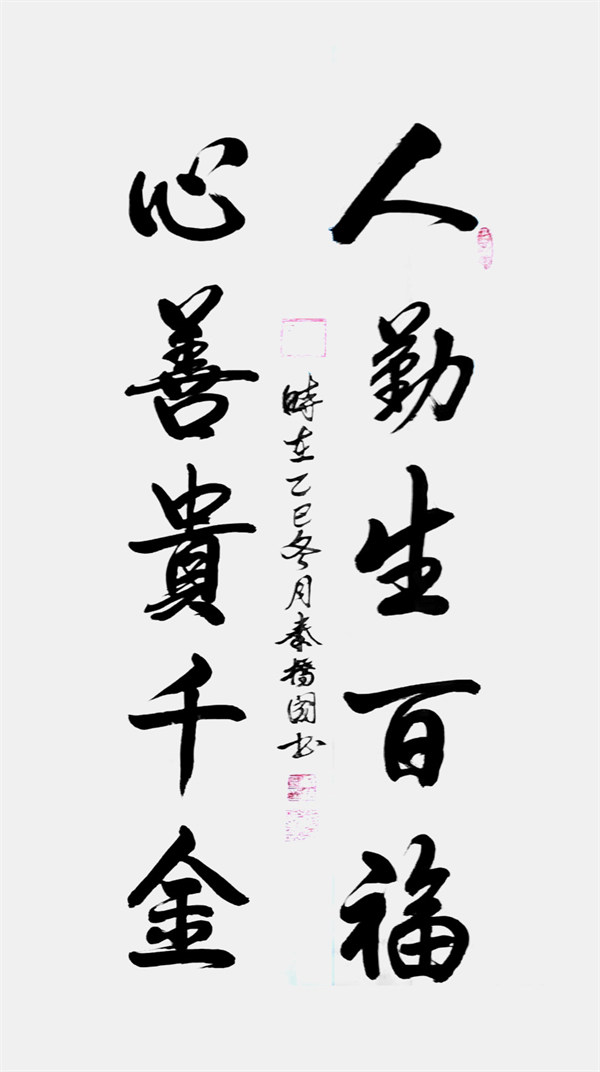 人勤生百福
心善貴千金
時在乙巳冬月秦橋國书